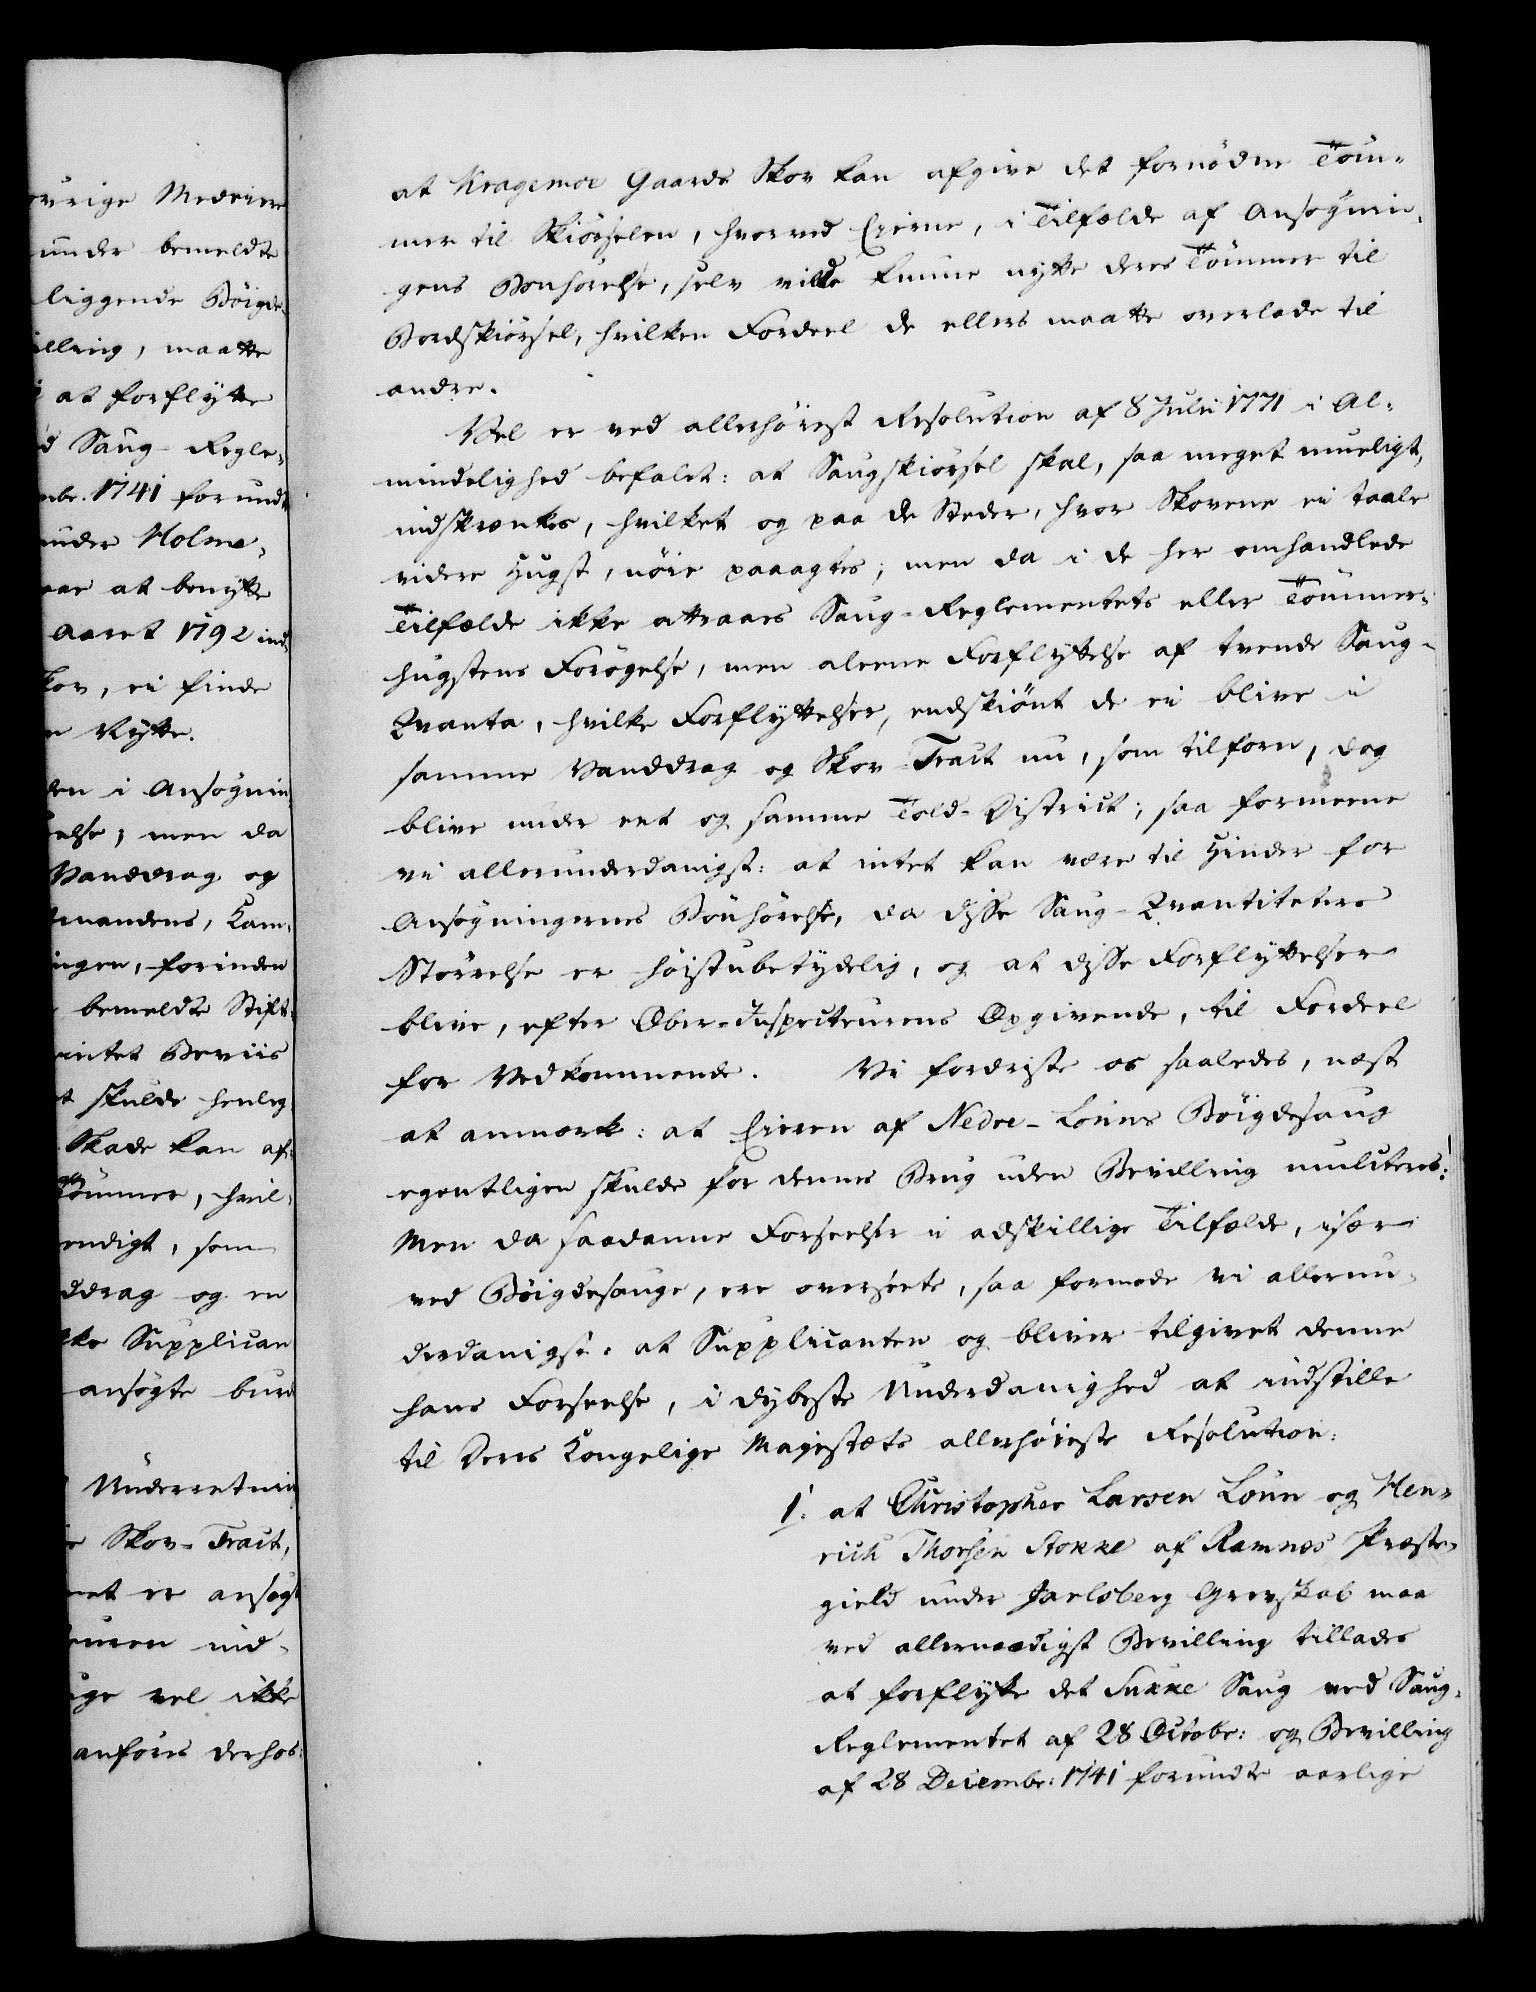 øvrige Medeiere
under bemeldte
liggende Böigde-
illing, maatte
at forflytte
d Saug-Regle-
mbr. 1741 forundt
under Holme-
aar at benytte
Aaret 1792 ind-
kov, ei finde
n Nytte.
den i Ansøgnin-
else; men da
Vanddrag og
mandens, Kam-
ingen, forinden
bemeldte Stift-
intet Beviis
t skulde henleg-
Skade kan af-
Tömmer, hvil-
endigt, som
ddrag og en
kke Supplican
ansøgte burd
Underretning
Skov-Tract,
et er ansøgt
euren ind-
uge vel ikke
anføres derhos:
at Kragemoe Gaards Skov kan afgive det fornødne Töm-
mer til Skiörselen, hvorved Eierne, i Tilfælde af Ansøgnin-
gens Bönhørelse, selv vilde kunne nytte deres Tömmer til
Bordskiörsel, hvilken Fordeel de ellers maatte overlade til
andre.
Vel er ved allerhöiest Resolution af 8 Julii 1771 i Al-
mindelighed befalet: at Saugskiörsel skal, saa meget mueligt,
indskrænkes, hvilket og paa de Steder, hvor Skovene ei taale
videre Hugst, nöie paaagtes; men da i de her omhandlede
Tilfælde ikke attraaes Saug-Reglementets eller Tömmer-
hugstens Forögelse, men aleene Forflyttelse af tvende Saug-
Qvanta, hvilke Forflyttelser, endskiönt de ei blive i
samme Vanddrag og Skov-Tract nu, som tilforn, dog
blive under eet og samme Told-District; saa formeene
vi allerunderdanigst: at intet kan være til Hinder for
Ansøgningernes Bönhörelse, da disse Saug-Qvantiteters
Störrelse er höistubetydelig, og at disse Forflyttelser
blive, efter Ober-Inspecteurens Opgivende, til Fordeel
for Vedkommende. Vi fordriste os saaledes, næst
at anmærke: at Eieren af Nedre-Lönns Böigdesaug
egentligen skulde for dennes Brug uden Bevilling mulcteres:
Men da saadanne Forseelser i adskillige Tilfælde, især
ved Böigdesauge, ere overseete, saa formode vi allerun-
derdanigst: at Supplicanten og bliver tilgivet denne
hans Forseelse, i dybeste Underdanighed at indstille
til Deres Kongelige Majestæts allerhöieste Resolution:
1. at Christopher Larsen Lönn og Hen-
rich Thorsen Stokke af Ramnes Præste-
gield under Jarlsberg Grevskab maa
ved allernaadigst Bevilling tillades
at forflytte det Sukke Saug ved Saug-
Reglementet af 28 Octobr: og Bevilling
af 28 Decembr: 1741 forundte aarlige